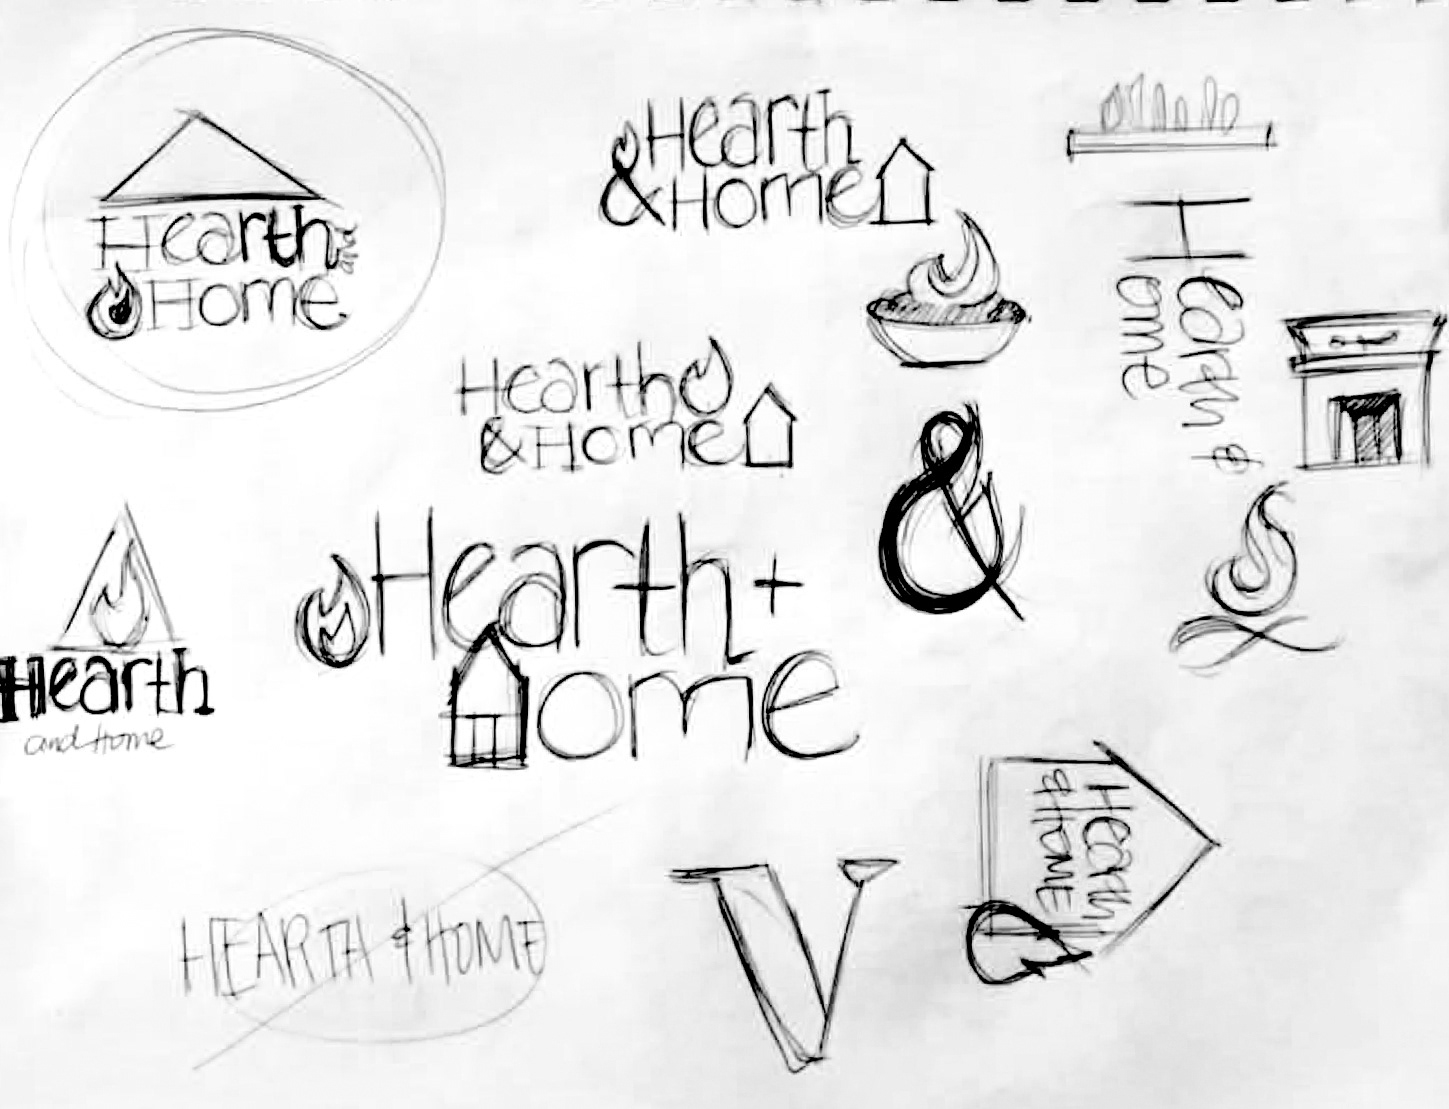 Hearth and
Home
Hearth
&Home
Hearth
&Home
&
Hearth &
ome
Hearth
and Home
Hearth+
ome
Hearth
& HOME
HEARTH & HOME
V